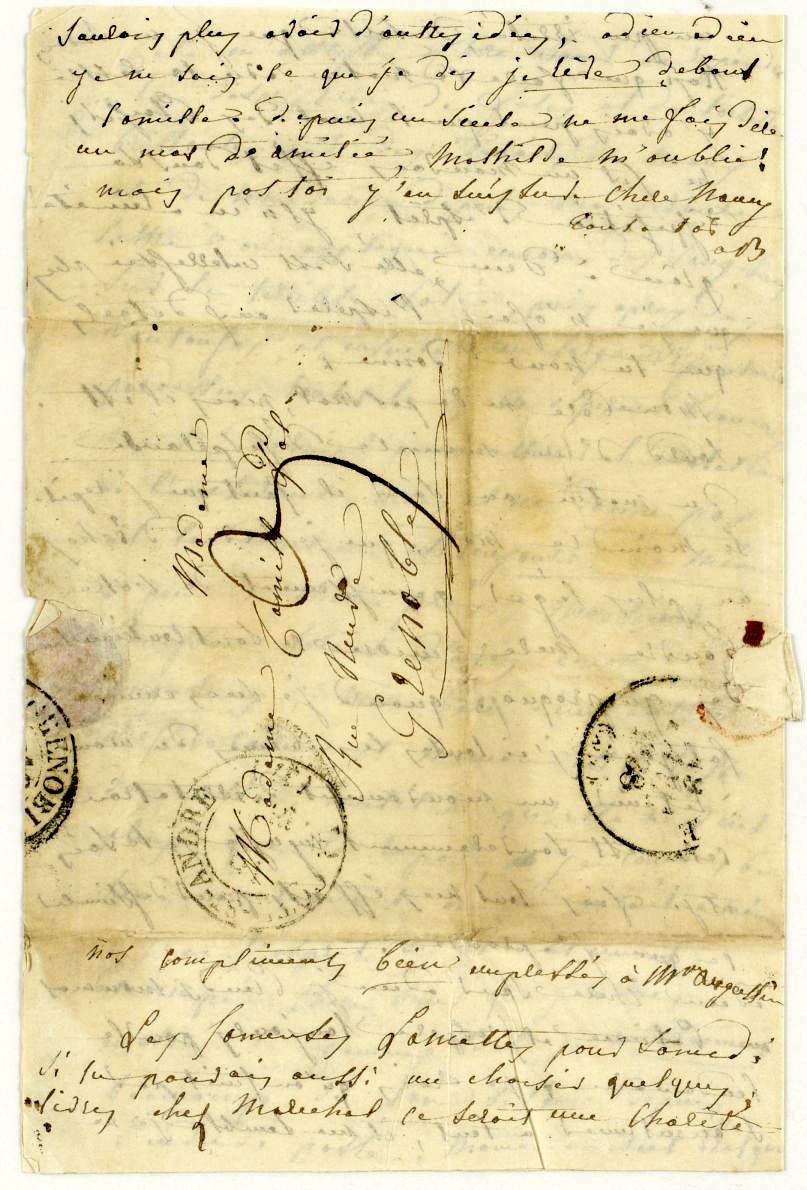 voulais plus avoir d'autres idées, adieu adieu
je ne sais ce que je dis je rêve debout
Camille depuis un siècle ne me fais dire
un mot d'amitié, Mathilde m'oublie!
mais pas toi j'en suis sure chère Nancy
tout a toi
aB
Madame
Madame Camille
Rue Neuve
Grenoble
3
GRENOBLE
ANDRÉ
nos compliments bien empressés à Mr Augustin
Les fameuses pour samedi
si tu pouvais aussi me choisir quelques
livres chez Maréchal ce serait une charité